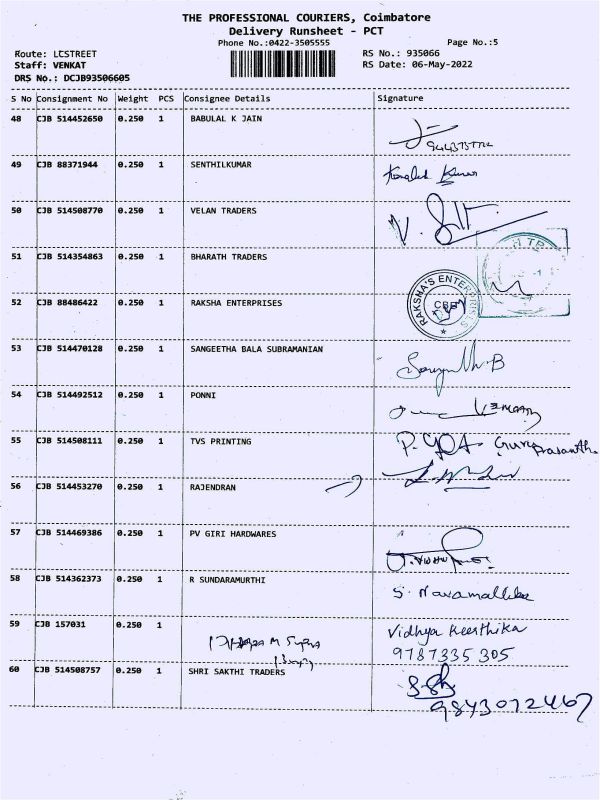 THE PROFESSIONAL COURIERS, Coimbatore
Delivery Runsheet - PCT
Phone No.:0422-3505555 Page No.:5
Route: LCSTREET RS No.: 935066
Staff: VENKAT RS Date: 06-May-2022
DRS No.: DCJB93506605
S No Consignment No Weight PCS Consignee Details Signature
48 CJB 514452650 0.250 1 BABULAL K JAIN
49 CJB 88371944 0.250 1 SENTHILKUMAR Kumar
50 CJB 514508770 0.250 1 VELAN TRADERS
51 CJB 514354863 0.250 1 BHARATH TRADERS
52 CJB 88486422 0.250 1 RAKSHA ENTERPRISES RAKSHA'S ENTERPRISES CBE
53 CJB 514470128 0.250 1 SANGEETHA BALA SUBRAMANIAN
54 CJB 514492512 0.250 1 PONNI
55 CJB 514508111 0.250 1 TVS PRINTING Guru Prasanth
56 CJB 514453270 0.250 1 RAJENDRAN
57 CJB 514469386 0.250 1 PV GIRI HARDWARES
58 CJB 514362373 0.250 1 R SUNDARAMURTHI S. Navamallika
59 CJB 157031 0.250 1 Vidhya Keerthika
9787335 305
60 CJB 514508757 0.250 1 SHRI SAKTHI TRADERS
9843072467